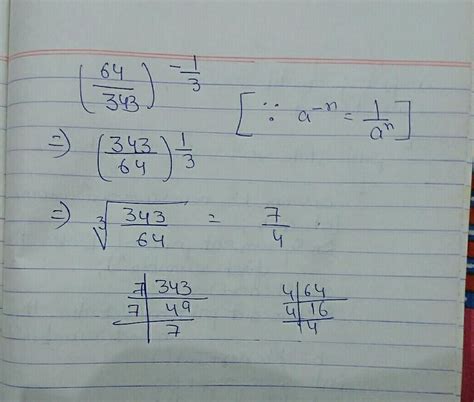 (64/343)^-1/3
[∵ a^-n = 1/a^n]
⇒ (343/64)^1/3
⇒ ∛(343/64) = 7/4
7 | 343
7 | 49
7
4 | 64
4 | 16
4